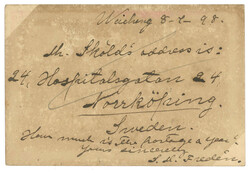 Weihsien 8-2-98.
Mr. Skölds address is:
24. Hospitalsgatan 24
Norrköping.
Sweden.
How much is the postage a year?
Yours sincerely
S. M. Fredén.